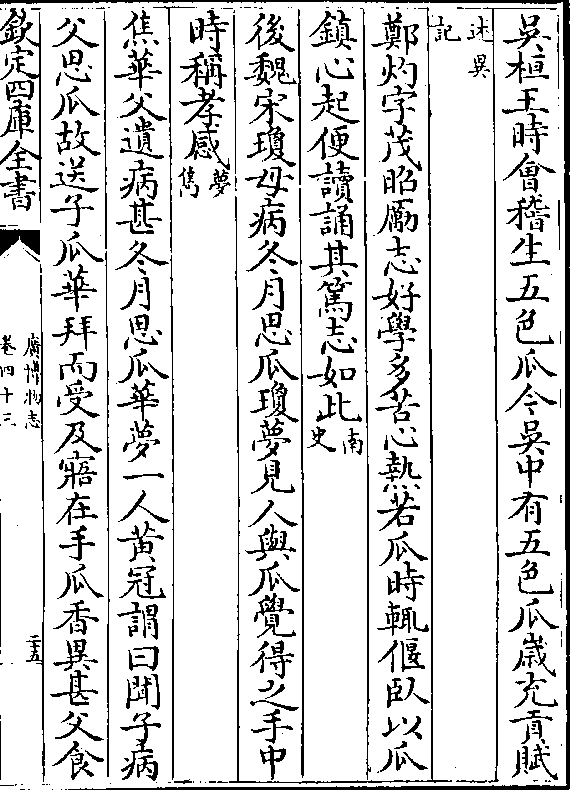 吳桓王時會稽生五色瓜今吳中有五色瓜歲充貢賦
述異
記
鄭灼字茂昭勵志好學多苦心熱若瓜時輒偃臥以瓜
鎮心起便讀誦其篤志如此南
史
後魏宋瓊母病冬月思瓜瓊夢見人與瓜覺得之手中
時稱孝感夢
雋
焦華父遺病甚冬月思瓜華夢一人黃冠謂曰聞子病
父思瓜故送子瓜華拜而受及寤在手瓜香異甚父食
欽定四庫全書
廣博物志
卷四十三
二十五